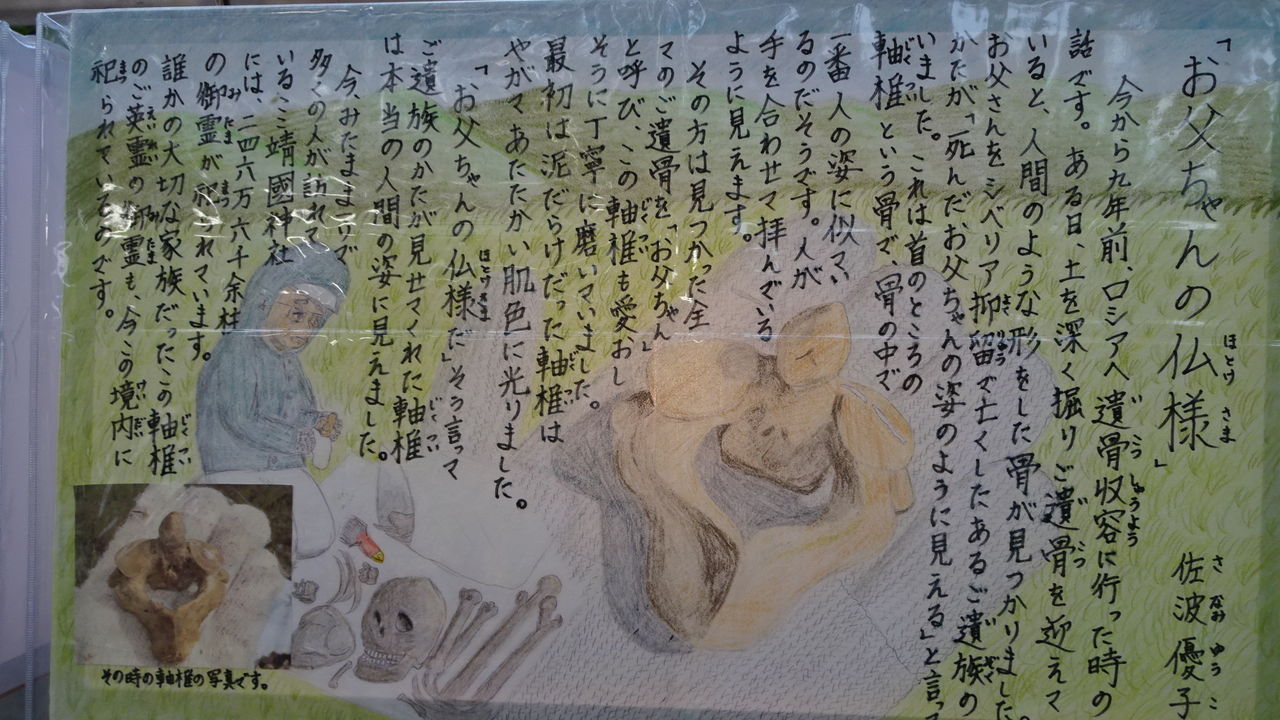 「お父ちゃんの仏様」
ほとけ さま
佐波優子
さ なみ ゆう こ
今から九年前、ロシアへ遺骨収容に行った時の
話です。ある日、土を深く掘りご遺骨を迎えて
いると、人間のような形をした骨が見つかりました。
お父さんをシベリア抑留で亡くしたあるご遺族の
かたが「死んだお父ちゃんの姿のように見える」と言って
いました。これは首のところの
軸椎という骨で、骨の中で
一番人の姿に似てい
るのだそうです。人が
手を合わせて拝んでいる
ように見えます。
その方は見つかった全
てのご遺骨を「お父ちゃん」
と呼び、この軸椎も愛おし
そうに丁寧に磨いていました。
最初は泥だらけだった軸椎は
やがてあたたかい肌色に光りました。
「お父ちゃんの仏様だ」そう言って
ご遺族のかたが見せてくれた軸椎
は本当の人間の姿に見えました。
今、みたままつりで
多くの人が訪れて
いるここ靖國神社
には、二四六万六千余柱
の御霊が祀られています。
誰かの大切な家族だったこの軸椎
のご英霊の御霊も、今この境内に
祀られているのです。
その時の軸椎の写真です。